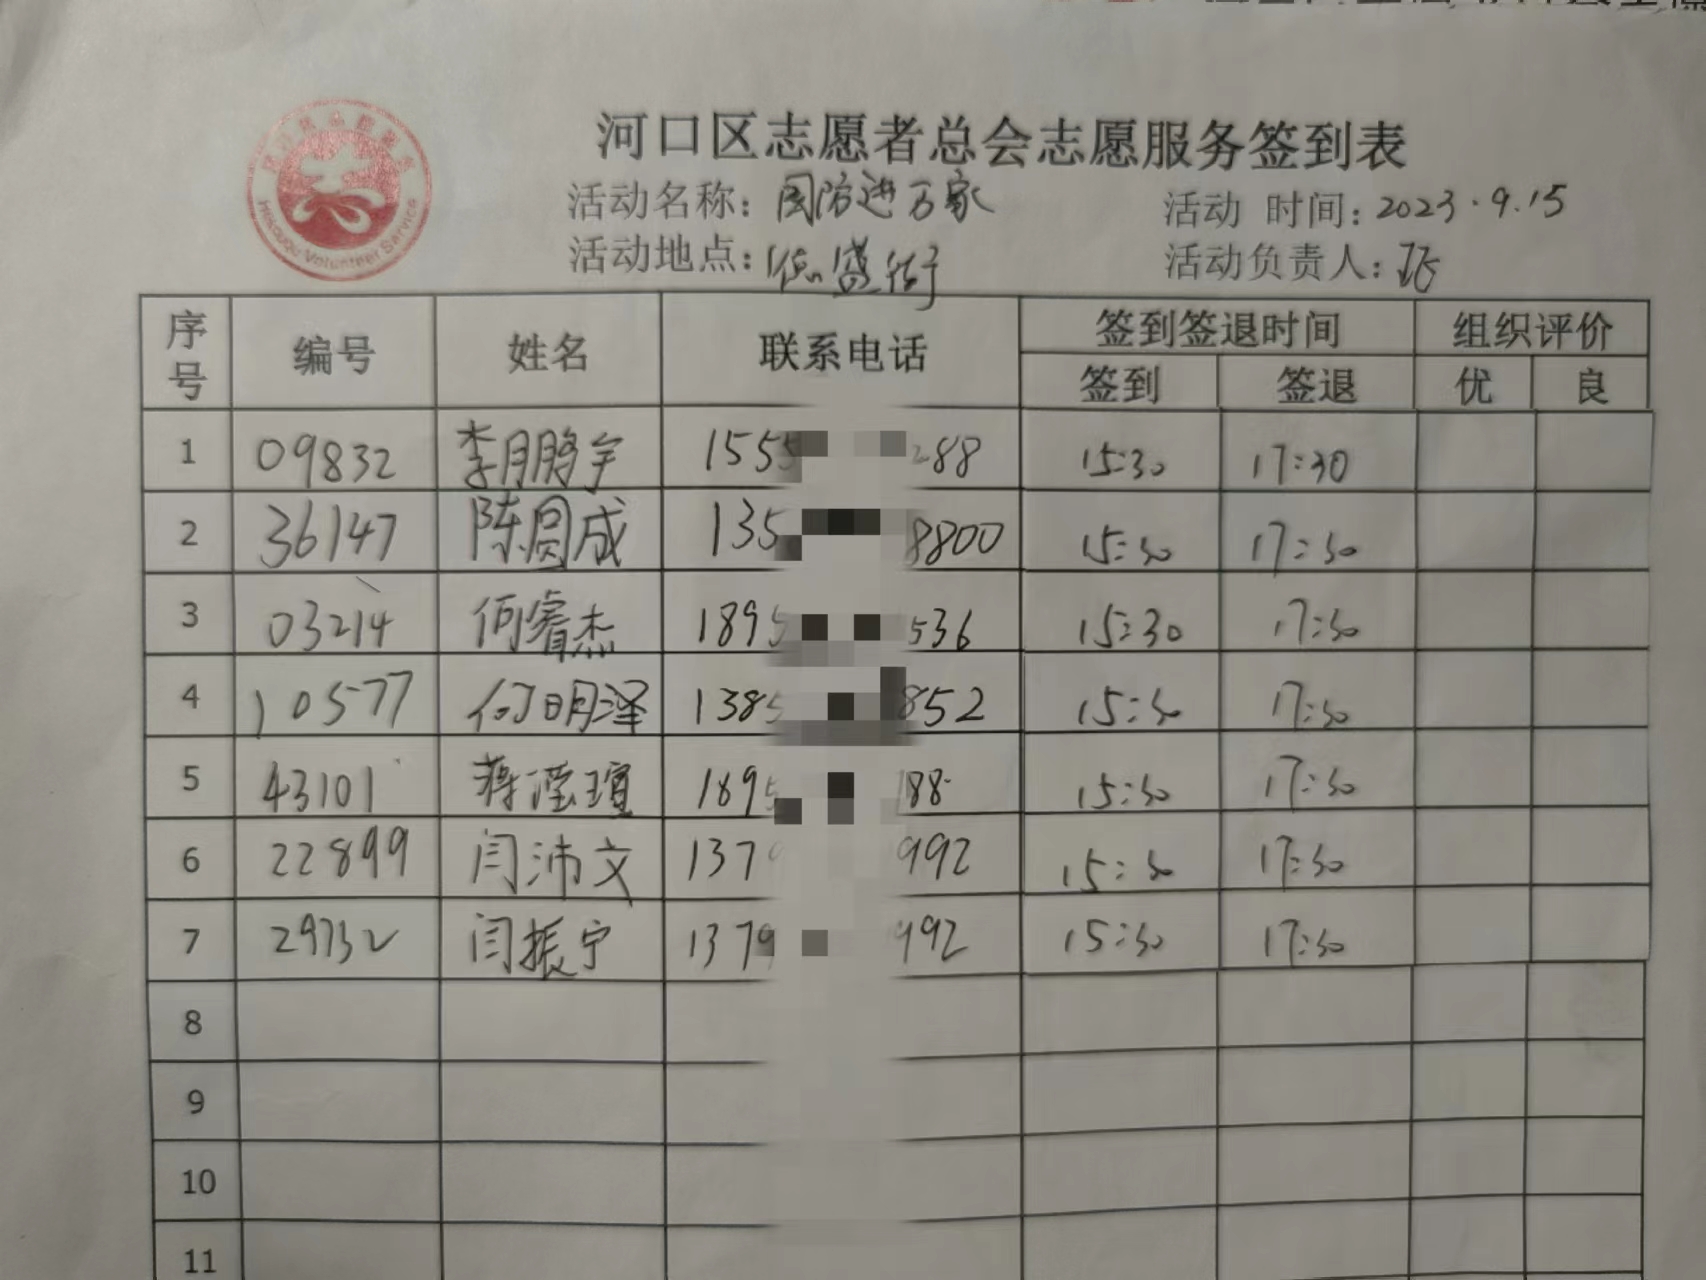 河口区志愿者总会志愿服务签到表
活动名称：国防进万家 活动 时间：2023.9.15
活动地点：盛街 活动负责人：
序号 编号 姓名 联系电话 签到签退时间 组织评价
签到 签退 优 良
1 09832 李鹏宇 155 288 15:30 17:30
2 36147 陈圆成 135 8800 15:30 17:30
3 03214 何睿杰 1895 536 15:30 17:30
4 10577 何明泽 1385 852 15:30 17:30
5 43101 蒋滢瑄 1895 188 15:30 17:30
6 22899 闫沛文 137 992 15:30 17:30
7 29732 闫振宁 1379 992 15:30 17:30
8
9
10
11
Volunteer Service